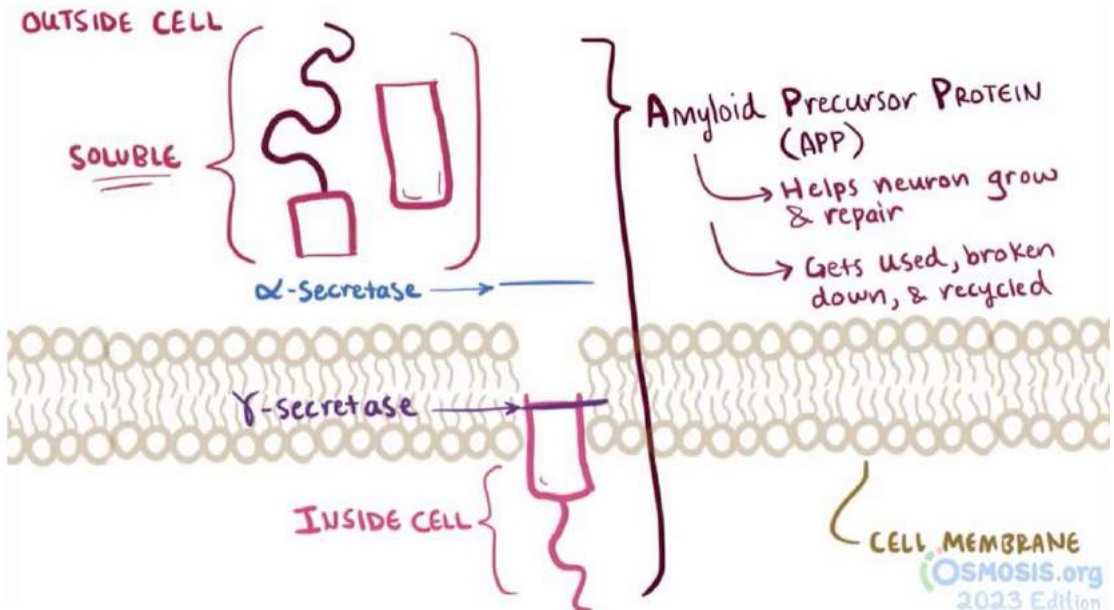 OUTSIDE CELL
SOLUBLE
Amyloid Precursor PROTEIN
(APP)
Helps neuron grow
& repair
Gets used, broken
down, & recycled
α-secretase
γ-secretase
INSIDE CELL
CELL MEMBRANE
OSMOSIS.org
2023 Edition